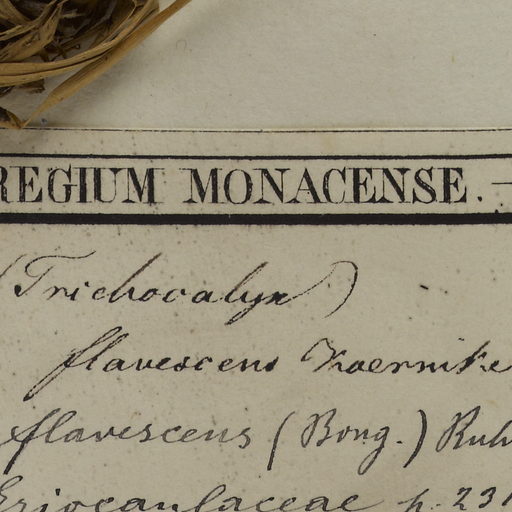 REGIUM MONACENSE. —
(Trichocalyx)
flavescens Koernike
flavescens (Bong.) Ruh
Eriocaulaceae p. 231